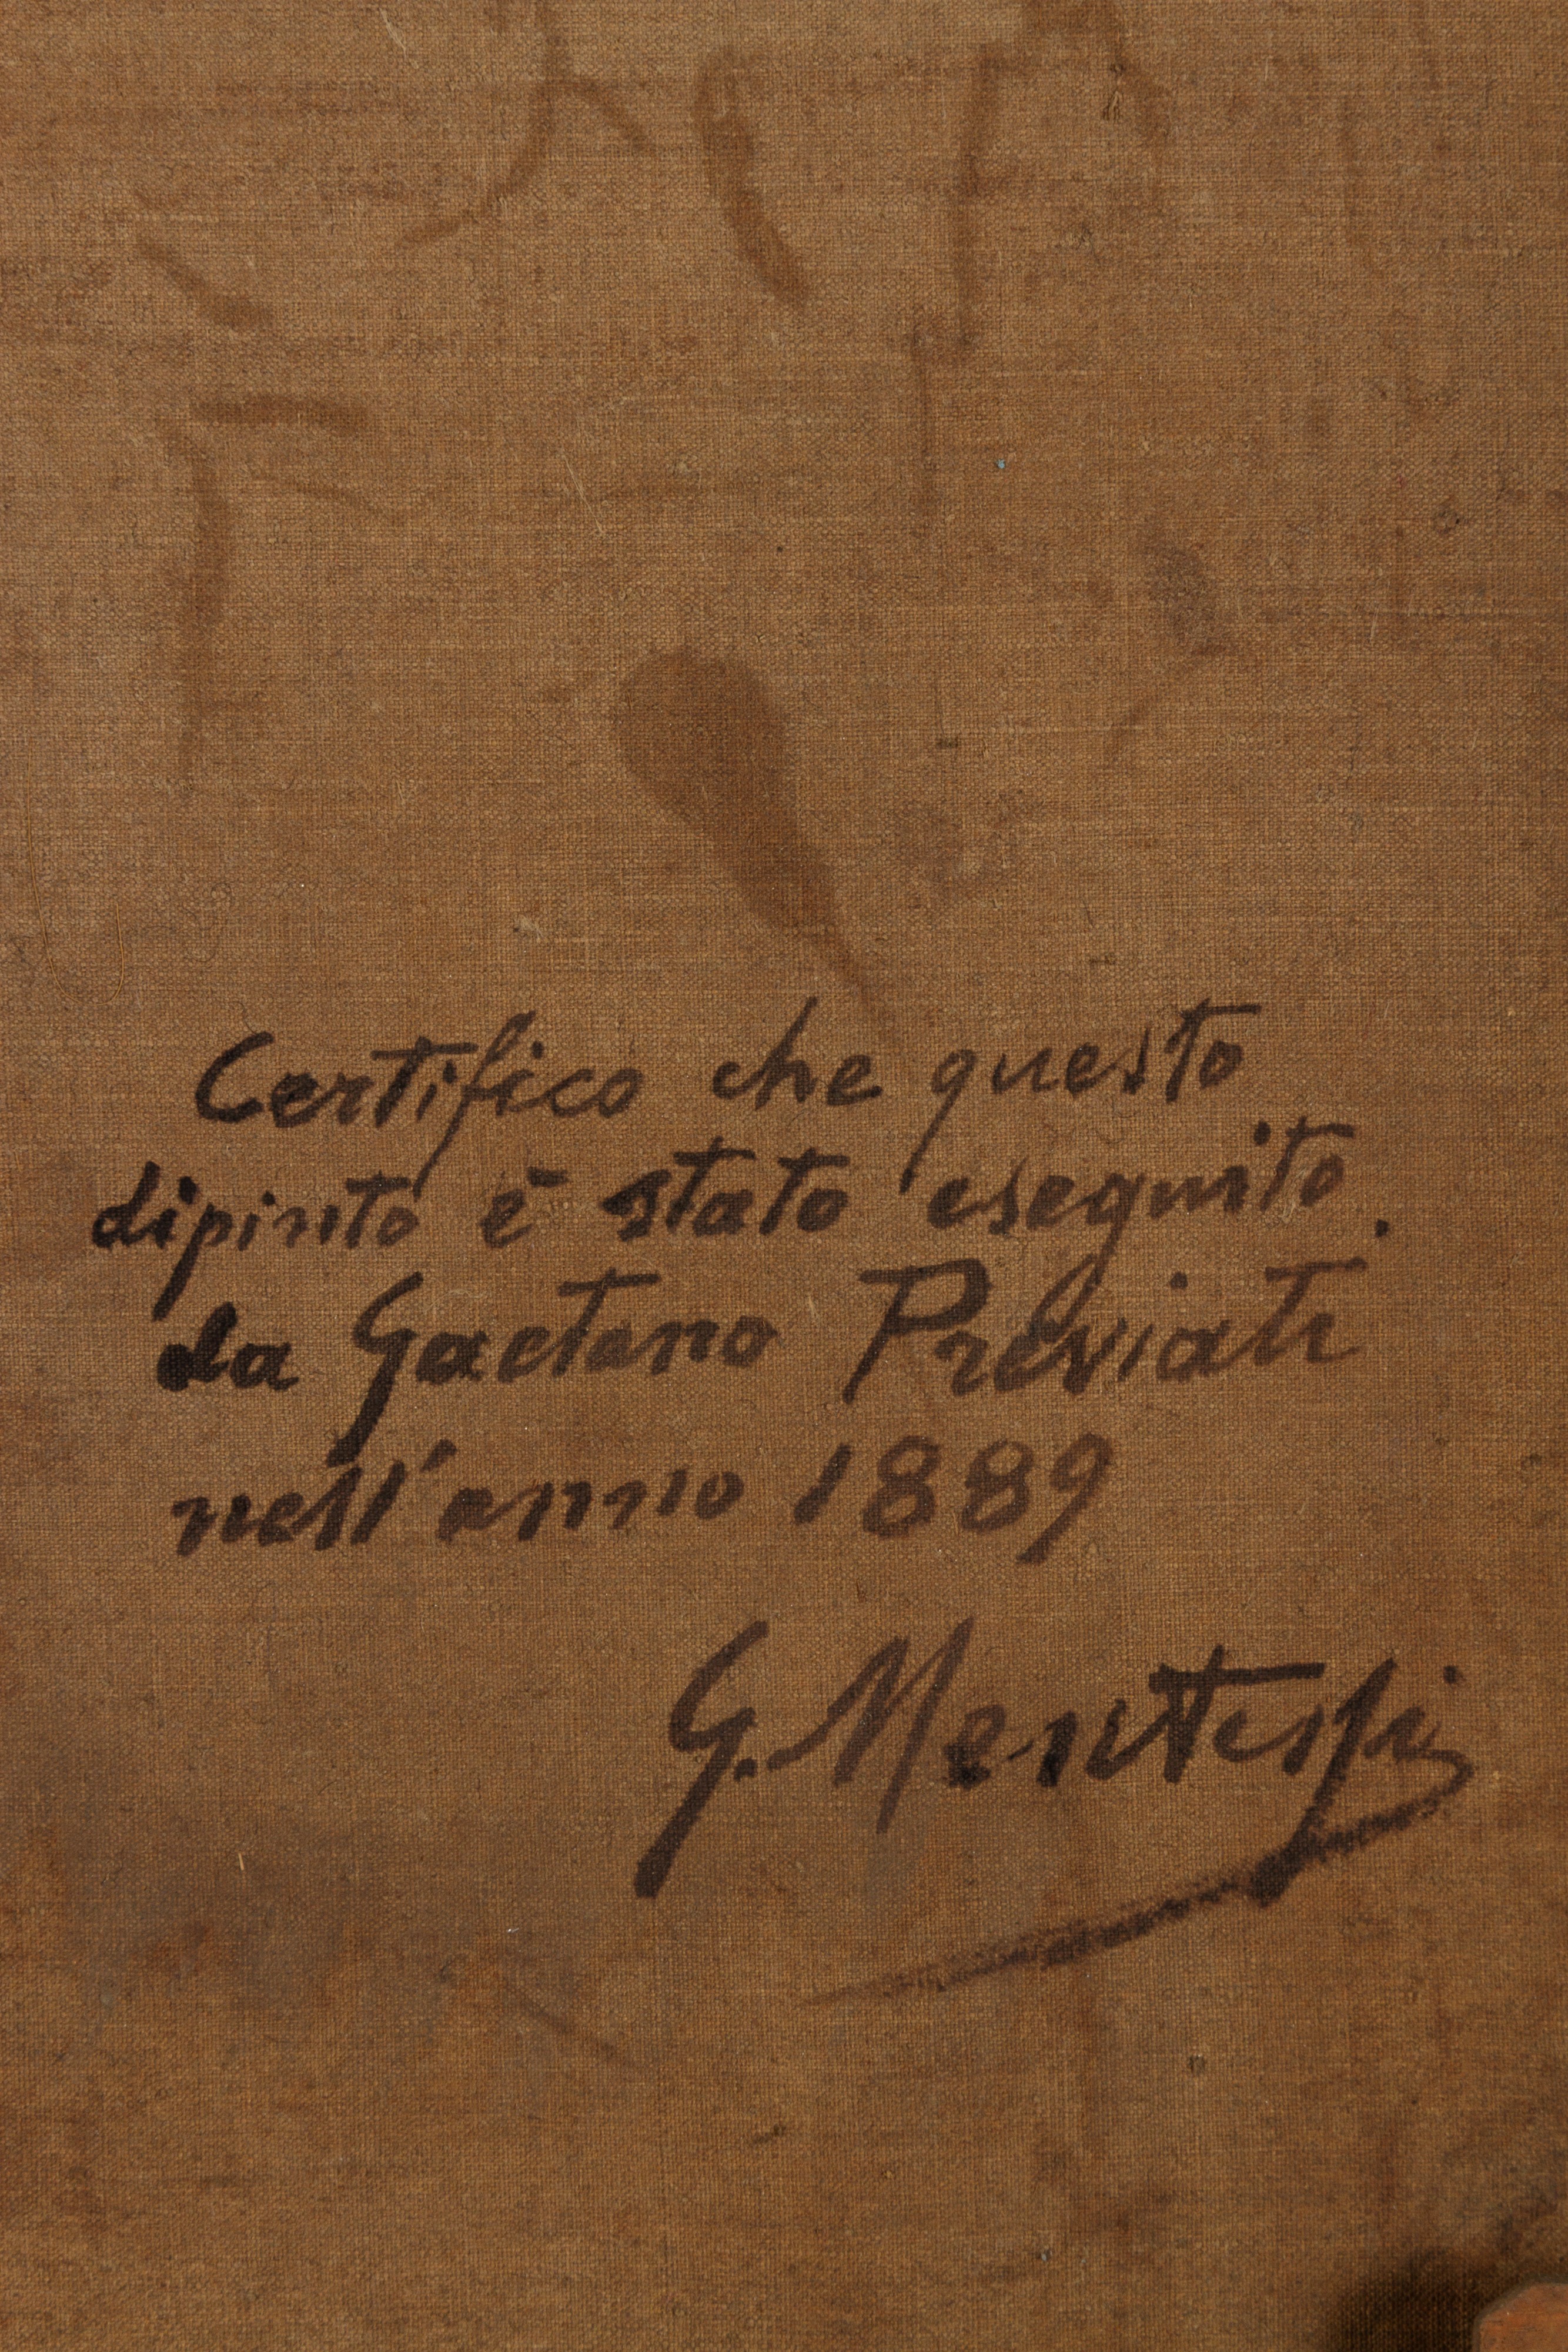 Certifico che questo
dipinto è stato eseguito.
da Gaetano Previati
nell'anno 1889
G. Mentessi